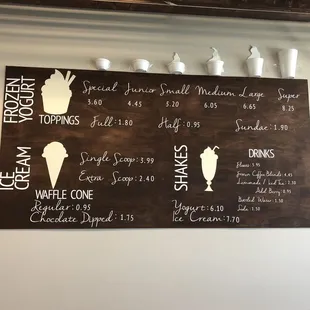 FROZEN YOGURT
Special Junior Small Medium Large Super
3.60 4.45 5.20 6.05 6.65 8.25
TOPPINGS
Full: 1.80 Half: 0.95 Sundae: 1.90
ICE CREAM
Single Scoop: 3.99
Extra Scoop: 2.40
WAFFLE CONE
Regular: 0.95
Chocolate Dipped: 1.75
SHAKES
Yogurt: 6.10
Ice Cream: 7.70
DRINKS
Frozen Coffee Blends
Lemonade / Iced Tea
Add Berry
Bottled Water
Soda